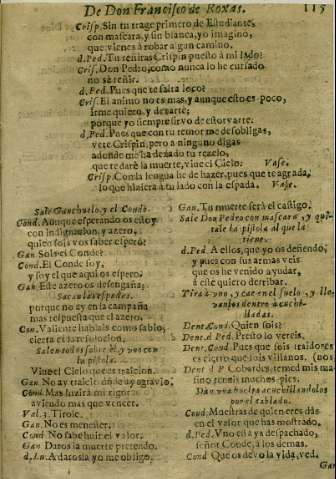 De Don Francisco de Roxas. 115
Crisp. Sin tu trage primero de Estudiante,
con mascara, y sin blanca, yo imagino,
que vienes à robar a gun camino.
d.Ped. Tu temiras Crispin puesto à mi lado?
Cris. Don Pedro, como nunca lo he cursado
no sè renir.
d.Ped. Pues que te falta loco?
Cris. El animo no es mas, y aunque esto es poco,
irme quiero, y dexarte;
porque yo siempre sirvo de estorvarte.
d.Ped. Pues que con tu temor me desobligas,
vete Crispin, pero a ninguno digas
adonde me has dexado tu traicio,
que te darè la muerte, vive el Cielo. Vase.
Crisp. Con la lengua he de hazer, pues que te agrada,
lo que hiziera à tu lado con la espada. Vase.
Sale Ganchuelo, y el Conde.
Cond. Aunque esperando os estoy
con indignacion, y azero,
quien sois vos saber espero?
Gan. Sois el Conde?
Cond. El Conde soy,
y soy el que aqui os espero.
Gan. Este azero os desengaña;
Sacan las espadas.
porque no ay en la campaña
mas respuesta que el azero.
Con. Valiente hablais como sabio,
cierta es la resolucion.
Salen todos sobre èl, y uno con
la pistola.
Vive el Cielo que es traicion.
Gan. No ay traicion donde ay agravio.
Cond. Mas luzirà mi rigor
aviendo mas que vencer.
Val. 3. Tirole.
Gan. No es menester.
Cond. No sabe huir el valor.
Gan. Daros la muerte pretendo.
d.Iu. A da osia yo me obligo.
Gan. Tu muerte serà el castigo.
Sale Don Pedro con mascara, y qui-
tale la pistola al que la
tiene.
d.Ped. A ellos, que yo os defiendo,
y pues con sus armas veis
que os he venido ayudar,
à este quiero derribar.
Tira à uno, y cae en el suelo, y lle-
vanlos dentro à cuchi-
lladas.
Dent.Cond. Quien sois?
Dent.d.Ped. Presto lo vereis.
Dent.Cond. Pues que sois traidores
es cierto que sois villanos. (nos
Dent.d.P. Cobardes, temed mis ma-
sino teneis muchos pies.
Dan una buelta acuchillandolos
por el tablado.
Cond. Muestras de quien eres dàs
en el valor que has mostrado.
d.Ped. Vno està ya despachado,
señor Conde, à los demas.
Cond. Que os devo la vida, ved.
Gan